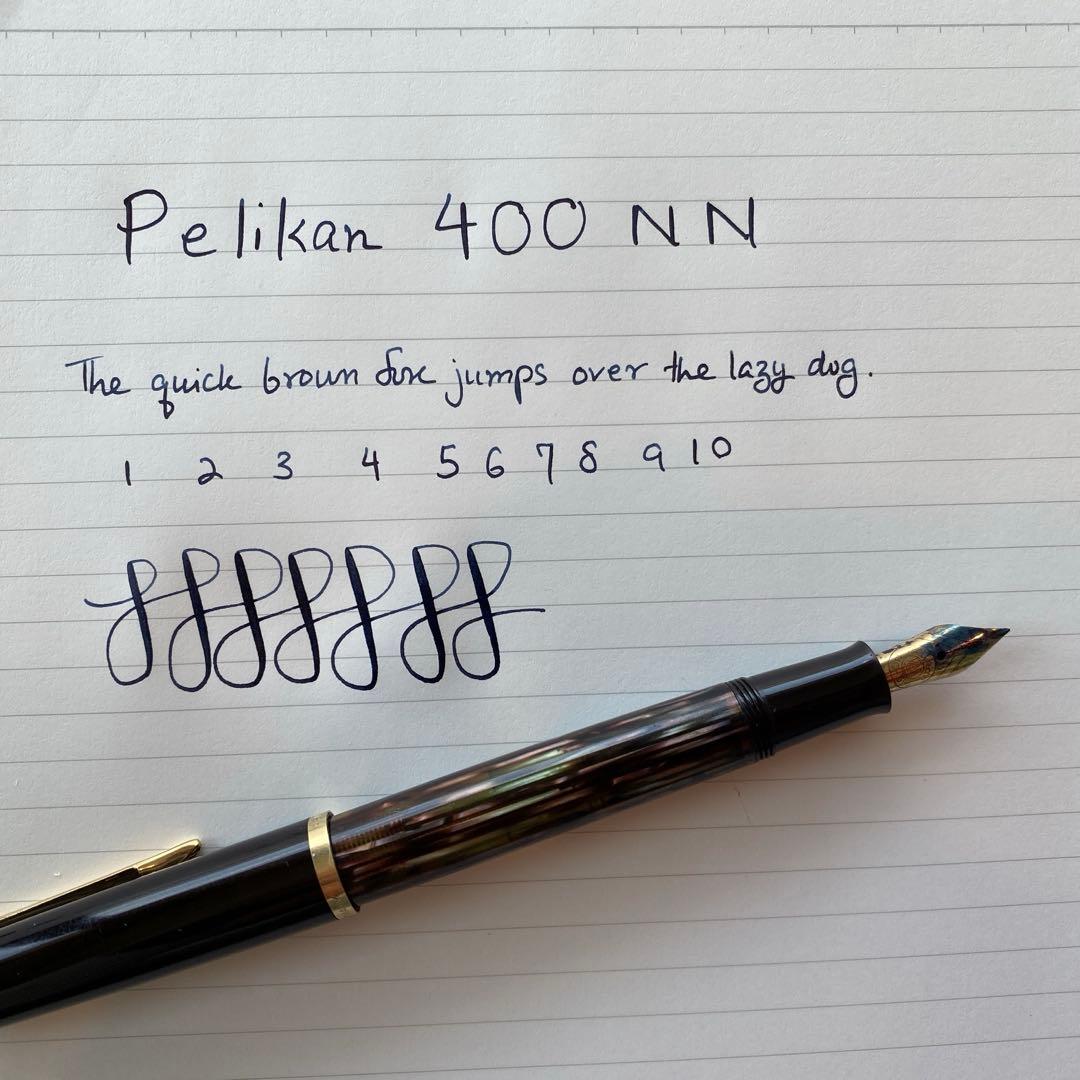 Pelikan 400 NN
The quick brown fox jumps over the lazy dog.
1 2 3 4 5 6 7 8 9 10